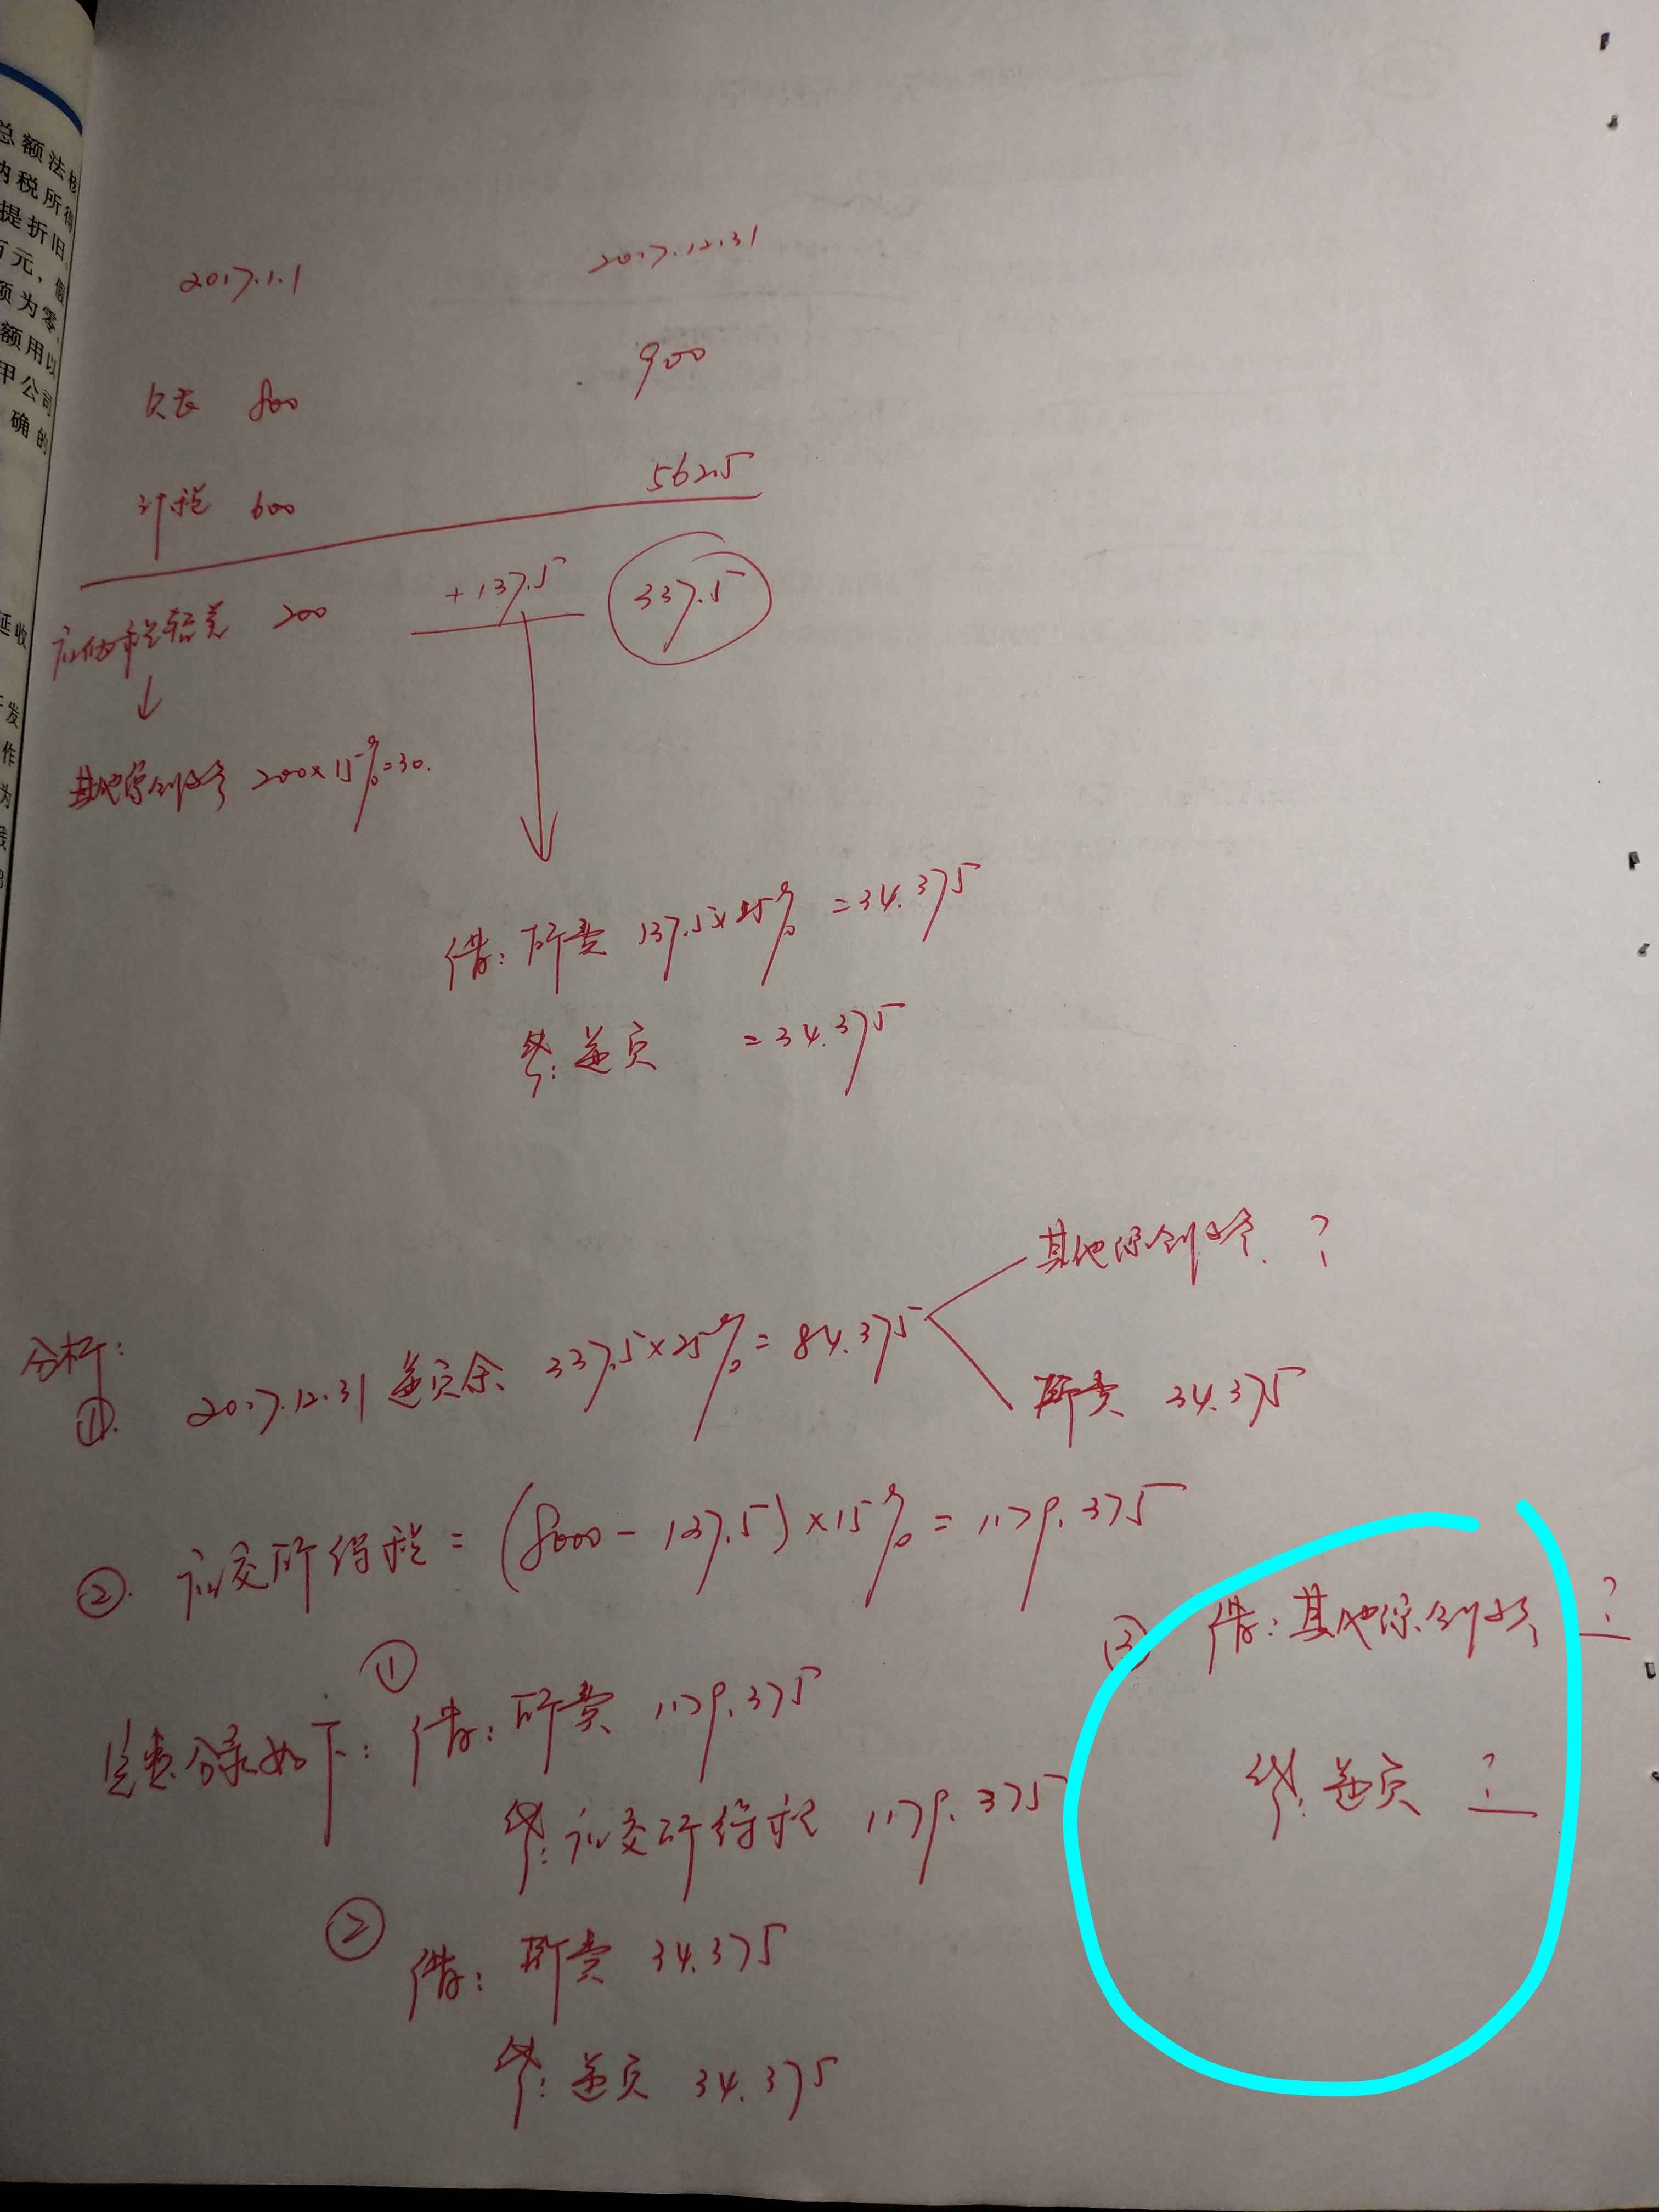 总额法核
纳税所得
提折旧。
万元，假
额为零，
额用以
甲公司
确的
延收
发
作
为
2017.1.1 2017.12.31
账 800 900
计税 600 562.5
应纳税暂差 200 +137.5 337.5
其他综合收益 200×15%=30.
借：所费 137.5×25% =34.375
贷：递负 =34.375
分析：
① 2017.12.31 递负余 337.5×25%=84.375
其他综合收益 ?
所费 34.375
② 应交所得税 = (8000-137.5)×15% = 1179.375
完整分录如下：
① 借：所费 1179.375
贷：应交所得税 1179.375
② 借：所费 34.375
贷：递负 34.375
③ 借：其他综合收益 ?
贷：递负 ?